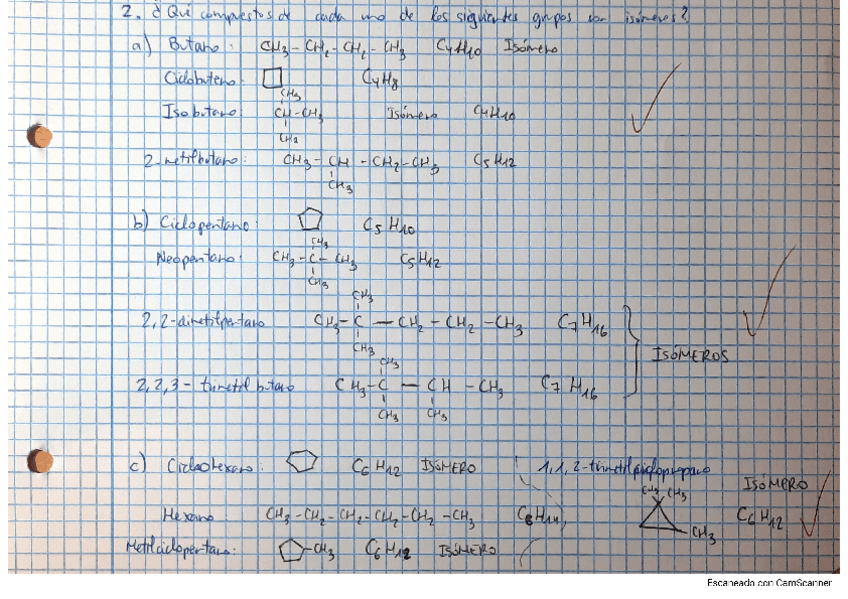 2. ¿Qué compuestos de cada uno de los siguientes grupos son isómeros?
a) Butano: CH3-CH2-CH2-CH3 C4H10 Isómero
Ciclobuteno: C4H8
CH3
Isobutano: CH-CH3 Isómero C4H10
CH3
2-metilbutano: CH3-CH-CH2-CH3 C5H12
CH3
b) Ciclopentano: C5H10
CH3
Neopentano: CH3-C-CH3 C5H12
CH3
CH3
2,2-dimetilpentano CH3-C-CH2-CH2-CH3 C7H16
CH3
ISÓMEROS
CH3
2,2,3-trimetil butano CH3-C-CH-CH3 C7H16
CH3 CH3
c) Ciclohexano: C6H12 ISÓMERO
1,1,2-trimetilciclopropano ISÓMERO
CH3 CH3
CH3 C6H12
Hexano CH3-CH2-CH2-CH2-CH2-CH3 C6H14
Metilciclopentano: -CH3 C6H12 ISÓMERO
Escaneado con CamScanner